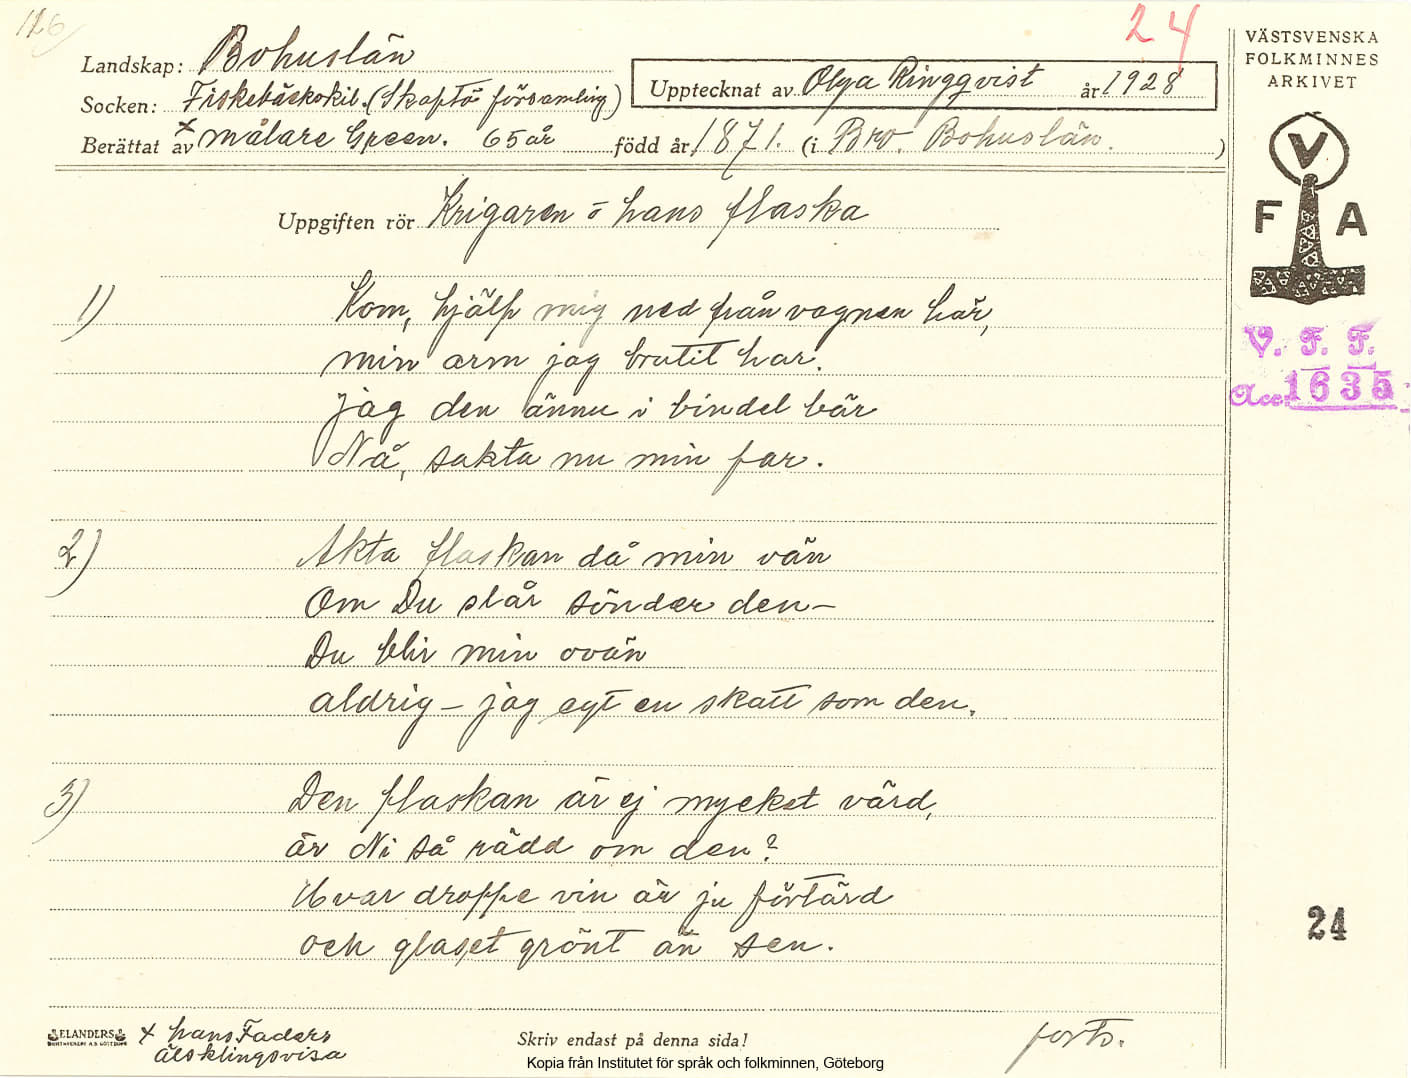 126
24
VÄSTSVENSKA
FOLKMINNES
ARKIVET
Landskap: Bohuslän
Upptecknat av Olga Ringqvist år 1928
Socken: Fiskebäckskil. (Skaftö församling)
Berättat av x målare Green. 65 år född år 1871. (i Bro. Bohuslän.)
V
F A
Uppgiften rör Krigaren o hans flaska
V. F. F.
Acc. 1635
1) Kom, hjälp mig ned från vagnen här,
min arm jag brutit har.
jag den ännu i bindel bär
Nå, sakta nu min far.
2) Akta flaskan då min vän
Om Du slår sönder den—
Du blir min ovän
aldrig — jag egt en skatt som den.
3) Den flaskan är ej mycket värd,
är Ni så rädd om den?
Hvar droppe vin är ju förtärd
och glaset grönt än sen.
24
ELANDERS
x hans Faders
älsklingsvisa
Skriv endast på denna sida!
forts.
Kopia från Institutet för språk och folkminnen, Göteborg